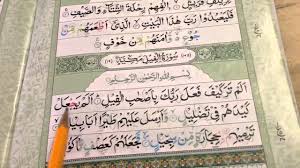 قُرَيْشٍ إِيلَافِهِمْ رِحْلَةَ الشِّتَاءِ وَالصَّيْفِ
فَلْيَعْبُدُوا رَبَّ هَذَا الْبَيْتِ الَّذِي أَطْعَمَهُمْ مِنْ
جُوعٍ وَآمَنَهُمْ مِنْ خَوْفٍ
سُورَةُ الْفِيلِ مَكِّيَّةٌ
بِسْمِ اللَّهِ الرَّحْمَنِ الرَّحِيمِ
أَلَمْ تَرَ كَيْفَ فَعَلَ رَبُّكَ بِأَصْحَابِ الْفِيلِ أَلَمْ يَجْعَلْ
كَيْدَهُمْ فِي تَضْلِيلٍ وَأَرْسَلَ عَلَيْهِمْ طَيْرًا أَبَابِيلَ
تَرْمِيهِمْ بِحِجَارَةٍ مِنْ سِجِّيلٍ فَجَعَلَهُمْ كَعَصْفٍ مَأْكُولٍ